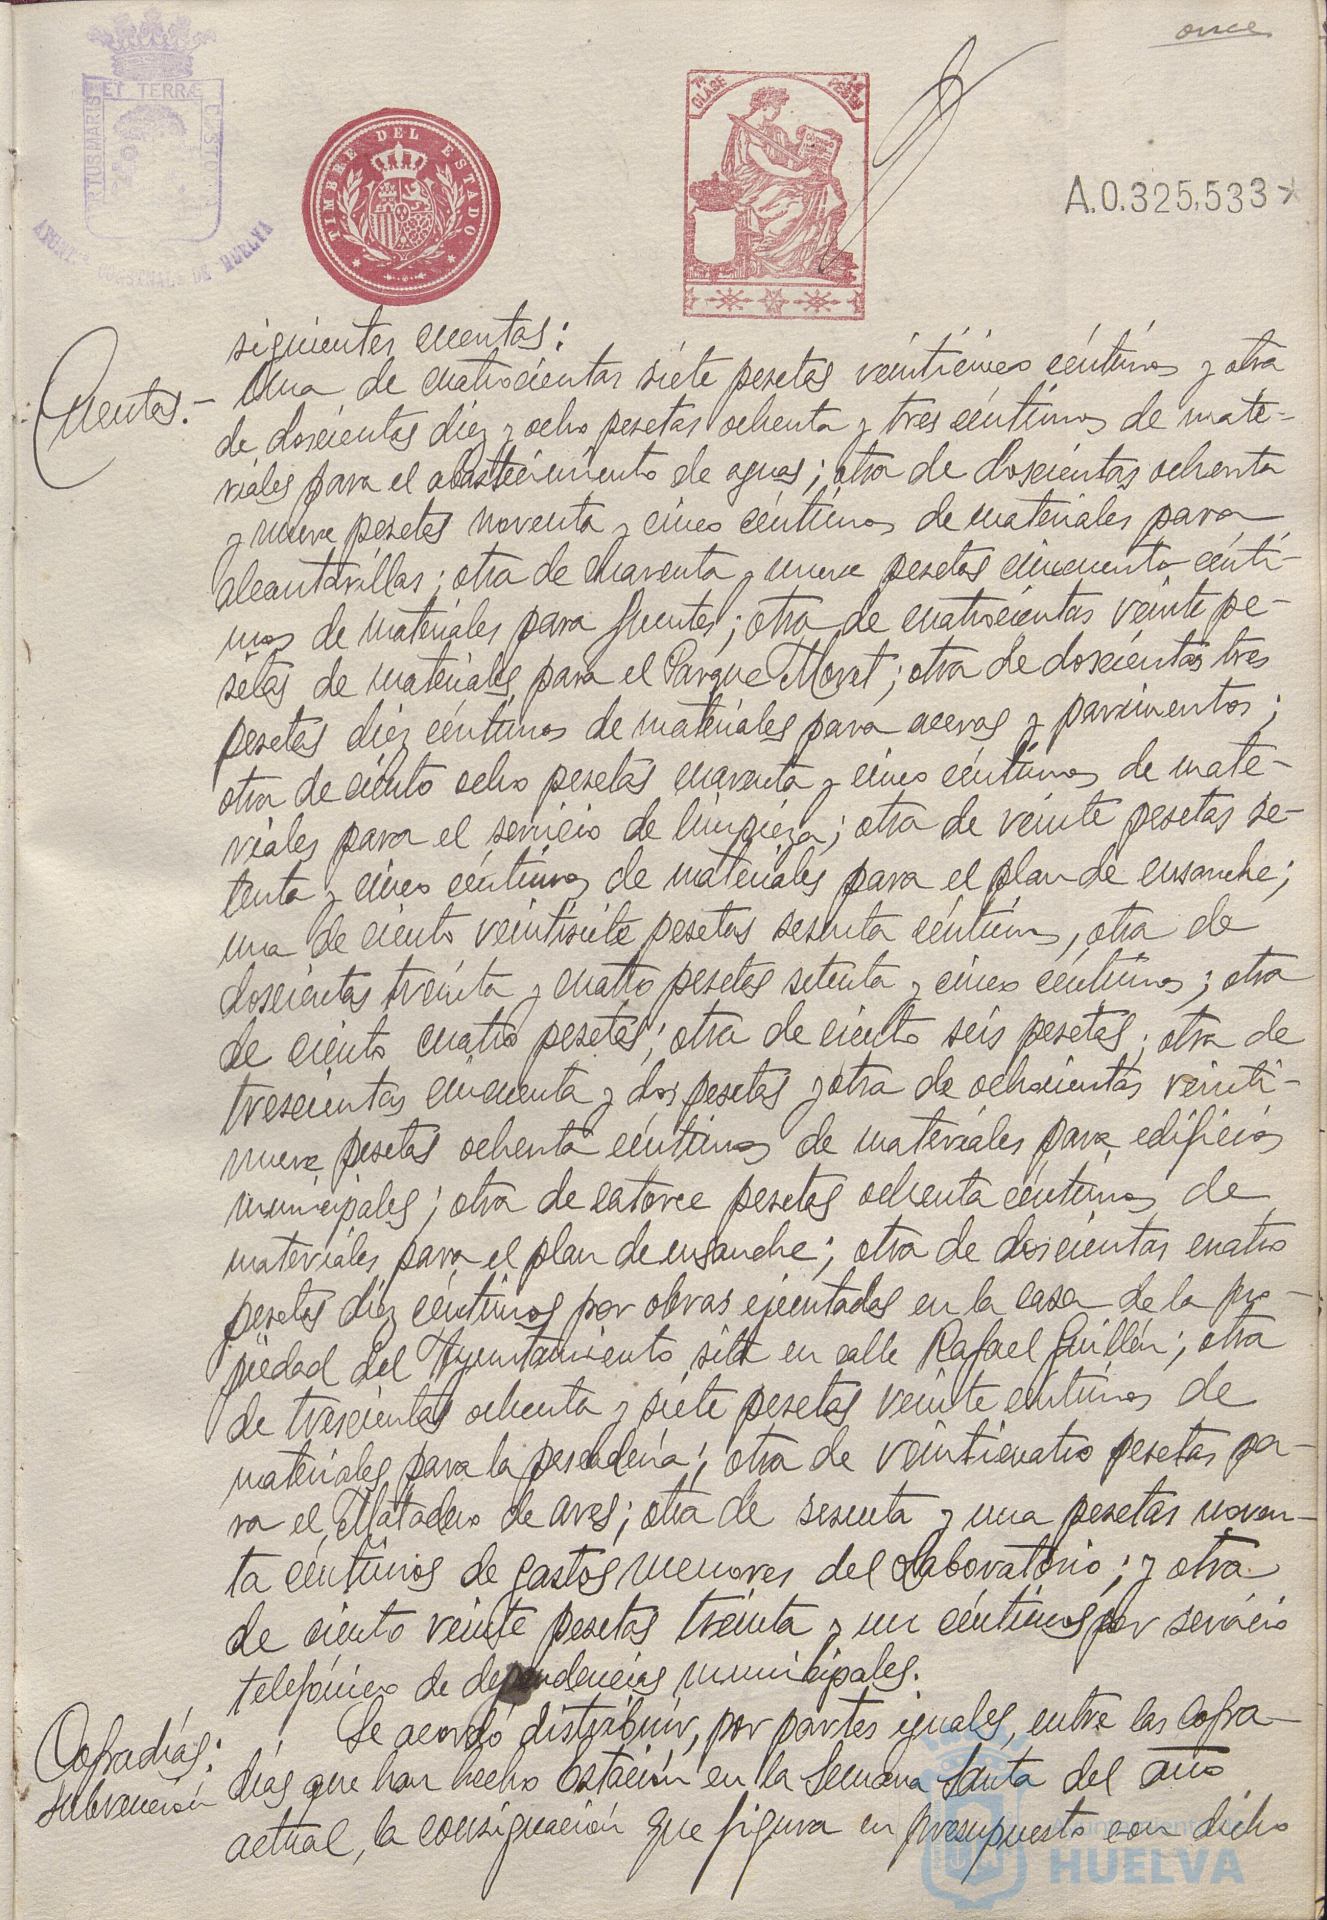 once
ET TERRÆ
PORTUS MARIS
CUSTODIA
AYUNT. CONSTNAL. DE HUELVA
TIMBRE DEL ESTADO
7ª CLASE
A.0.325,533
siguientes cuentas:
Cuentas.- Una de cuatrocientas siete pesetas veinticinco céntimos y otra
de doscientas diez y ocho pesetas ochenta y tres céntimos de mate-
riales para el abastecimiento de aguas; otra de doscientas ochenta
y nueve pesetas noventa y cinco céntimos de materiales para
alcantarillas; otra de cuarenta y nueve pesetas cincuenta cénti-
mos de materiales para fuentes; otra de cuatrocientas veinte pe-
setas de materiales para el Parque Moret; otra de doscientas tres
pesetas diez céntimos de materiales para aceras y pavimentos;
otra de ciento ocho pesetas cuarenta y cinco céntimos de mate-
riales para el servicio de limpieza; otra de veinte pesetas se-
tenta y cinco céntimos de materiales para el plan de ensanche;
una de ciento veintisiete pesetas sesenta céntimos, otra de
doscientas treinta y cuatro pesetas setenta y cinco céntimos; otra
de ciento cuatro pesetas; otra de ciento seis pesetas; otra de
trescientas cincuenta y dos pesetas y otra de ochocientas veinti-
nueve pesetas ochenta céntimos de materiales para edificios
municipales; otra de catorce pesetas ochenta céntimos de
materiales para el plan de ensanche; otra de doscientas cuatro
pesetas diez céntimos por obras ejecutadas en la casa de la pro-
piedad del Ayuntamiento sita en calle Rafael Guillén; otra
de trescientas ochenta y siete pesetas veinte céntimos de
materiales para la pescadería; otra de veinticuatro pesetas pa-
ra el Matadero de aves; otra de sesenta y una pesetas noven-
ta céntimos de gastos menores del Laboratorio; y otra
de ciento veinte pesetas treinta y un céntimos por servicio
telefónico de dependencias municipales.
Cofradías: Se acordó distribuir, por partes iguales, entre las cofra-
subvención días que han hecho Estación en la Semana Santa del año
actual, la consignación que figura en presupuesto con dicho
Ayuntamiento de
HUELVA